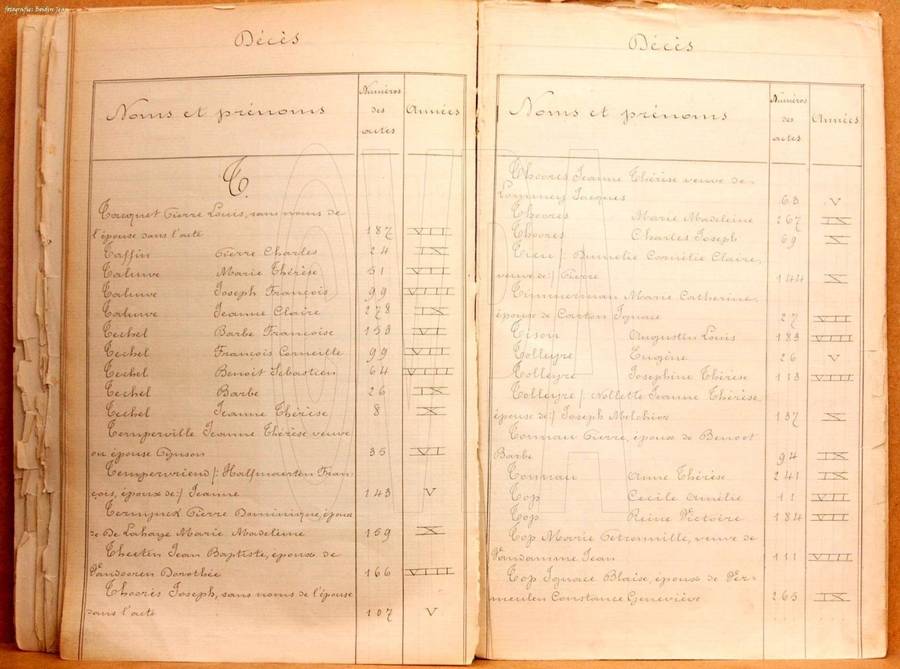 fotografies Bonfin Jean
Décès
Noms et prénoms
Numéros des actes
Années
T
Tacquet Pierre Louis, sans noms de
l'épouse dans l'acte 187 VII
Taffin Pierre Charles 24 IX
Taluwe Marie Thérèse 51 VII
Taluwe Joseph François 99 VIIII
Taluwe Jeanne Claire 278 IX
Techel Barbe Françoise 153 VI
Techel François Corneille 99 VII
Techel Benoit Sebastien 64 VIIII
Techel Barbe 26 IX
Techel Jeanne Thérèse 8 X
Temperville Jeanne Thérèse veuve
ou épouse 35 VI
Tempervriend /: Halfmaerten Fran-
çois, époux de :/ Jeanne 143 V
Termynck Pierre Dominique, époux
de De Lahaye Marie Madeleine 159 X
Theeten Jean Baptiste, époux de
Vandooren Dorothée 166 VIIII
Thoores Joseph, sans noms de l'épouse
dans l'acte 107 V
Décès
Noms et prénoms
Numéros des actes
Années
Thoores Jeanne Thérèse veuve de
Lommens Jacques 63 V
Thoores Marie Madeleine 267 IX
Thoores Charles Joseph 69 X
Tieu /: Dumelie Cornélie Claire,
veuve de :/ Pierre 144 X
Timmerman Marie Catherine,
épouse de Carton Ignace 27 VII
Tison Augustin Louis 183 VIII
Tolleyre Eugène 26 V
Tolleyre Josephine Thérèse 113 VIII
Tolleyre /: Nollette Jeanne Thérèse
épouse de :/ Joseph Melchior 137 X
Tommau Pierre, époux de Benoot
Barbe 94 IX
Tommau Anne Thérèse 241 IX
Top Cecile Amélie 11 VII
Top Reine Victoire 184 VII
Top Marie Petronnille, veuve de
Vandamme Jean 111 VIII
Top Ignace Blaise, époux de Ver-
meulen Constance Geneviève 265 IX